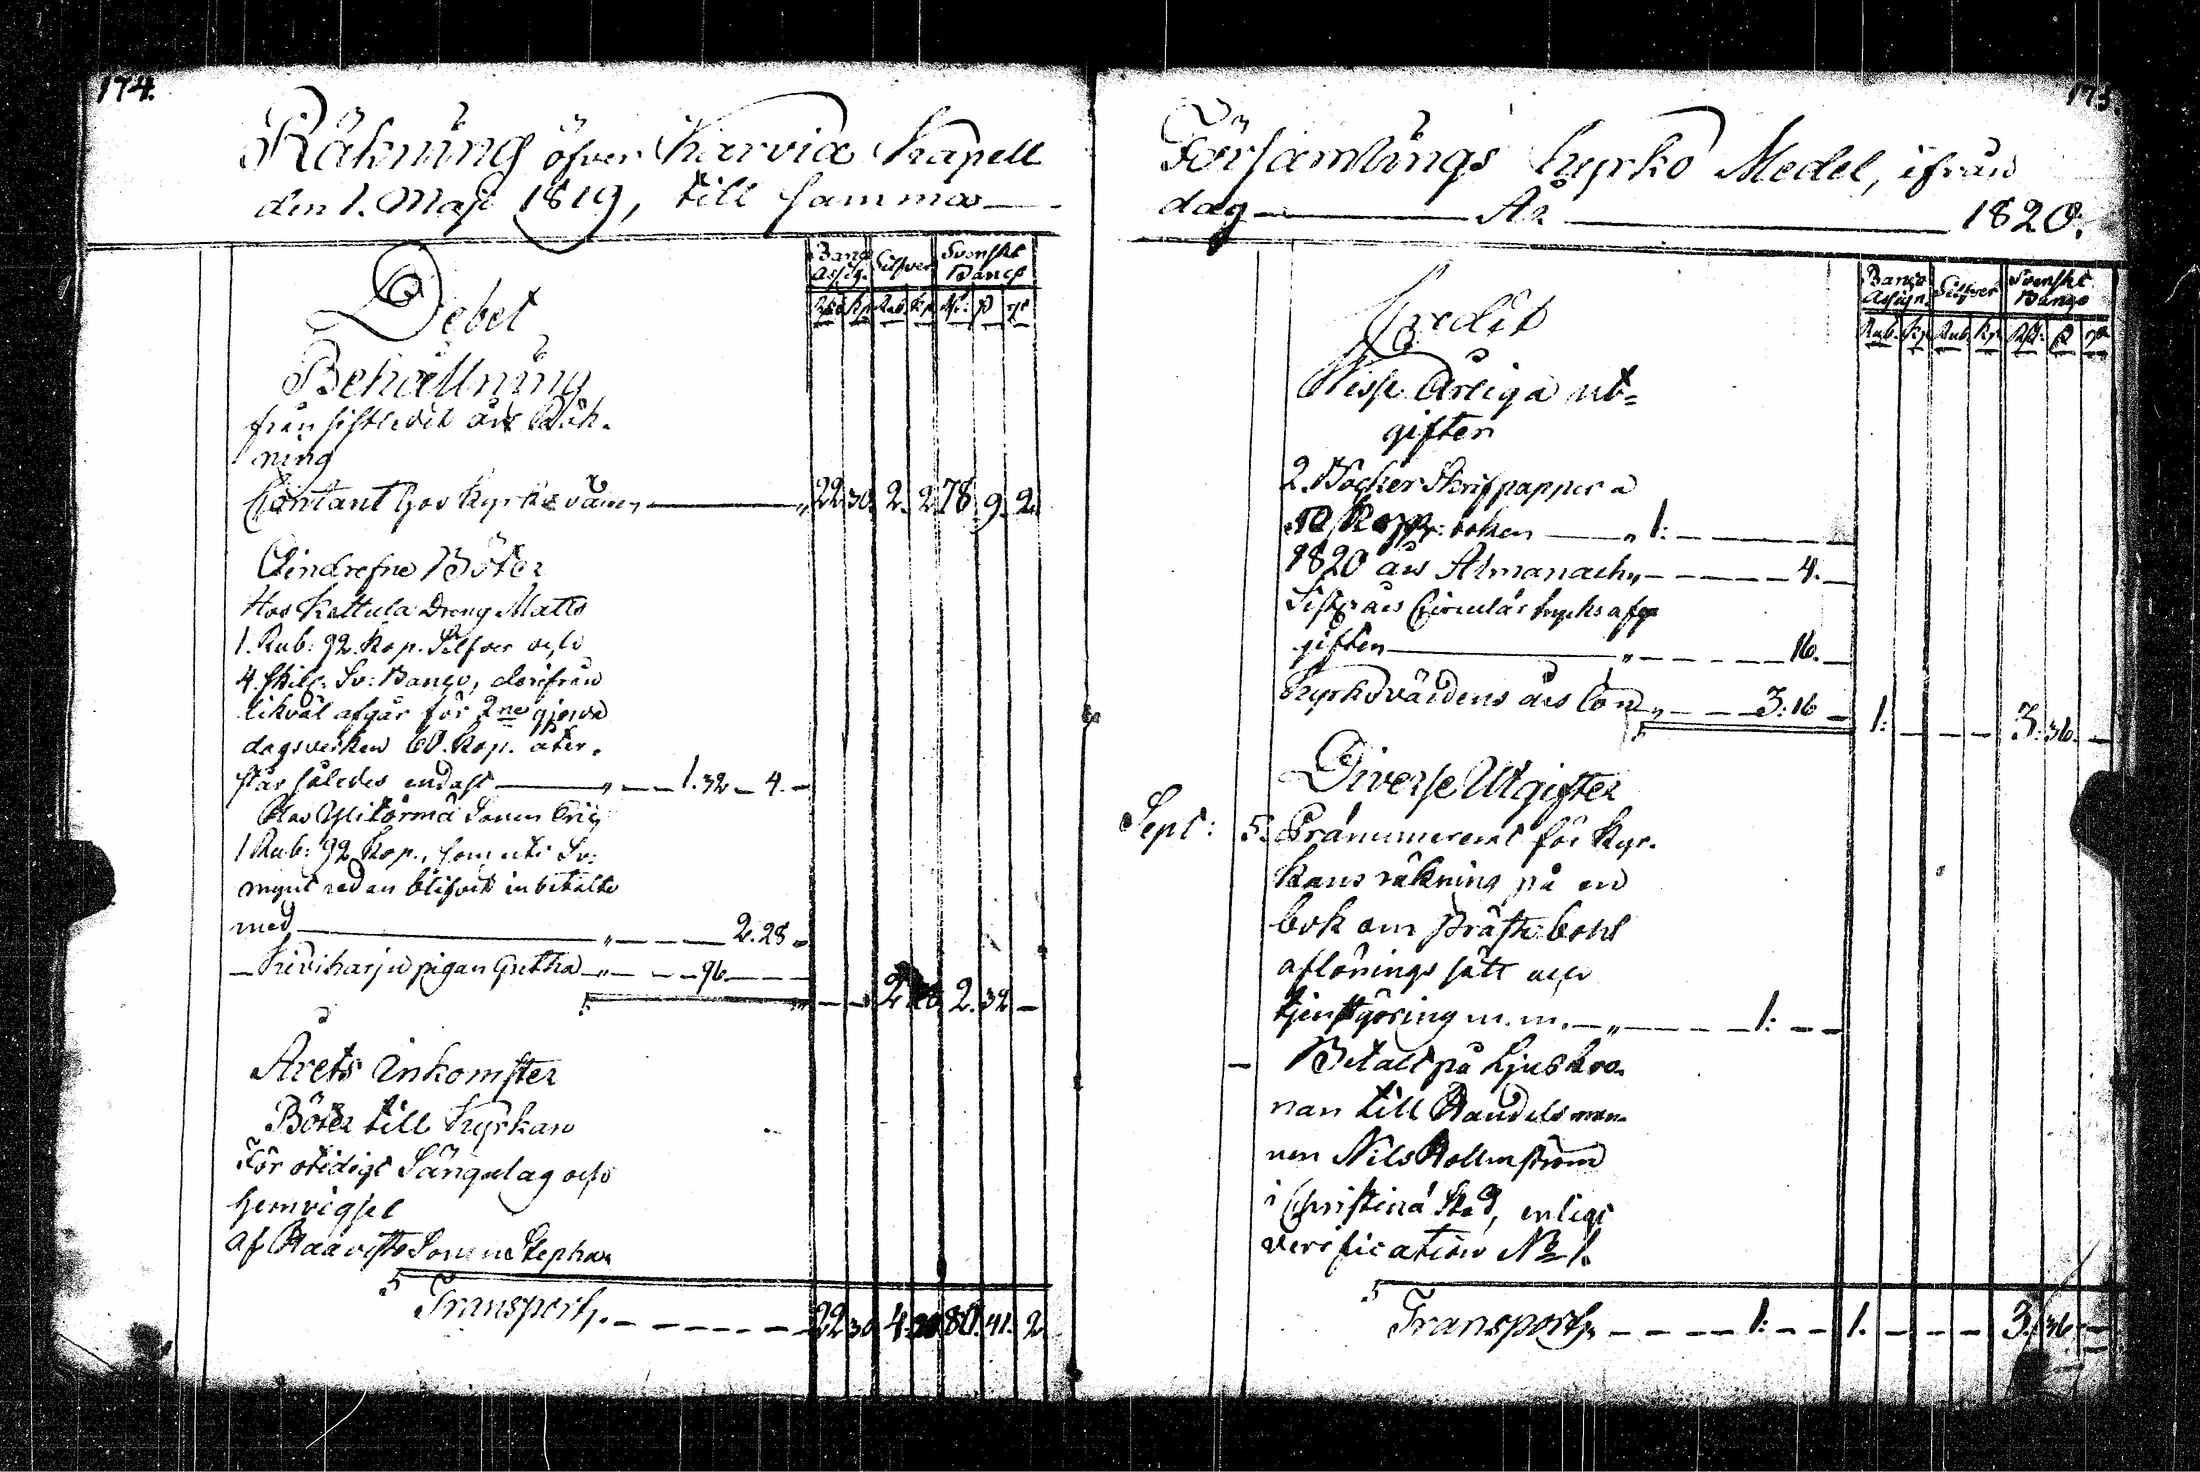 174.
Räkning öfver Karvia Kapell
den 1. Maji 1819, till samma
Banco Assig. Silfver Svenskt Banco
Rub. Kp. Rub. Kp. Rd: ß rst
Debet
Behållning
från sistledit års Räk-
ning
Contant hos Kyrkovärden 22 30. 2. 2 78. 9. 2.
Oindrefne Böter
Hos Kattula Dreng Matts
1. Rub: 92. Kop. Silfver och
4. skill. Sv: Banco, derifrån
likväl afgår för 2ne gjorde
dagsverken 60. Kop. åter-
står således endast 1. 32 4.
Hos Ylitörmä Sonen Eric
1 Rub: 92 Kop., som uti Sv:
mynt redan blifvit inbetalte
med 2. 28
Kiviharju pigan Gretha 96
2. 2. 32
Årets Inkomster
Böter till Kyrkan
För otidigt Sängelag och
hemvigsel
af Haavisto Sonen Stephan
Transport 22 30 4. 30 80. 41. 2
175.
Församlings Kyrko Medel, ifrån
dag År 1820.
Banco Assign. Silfver Svenskt Banco
Rub. Kp. Rub. Kp. Rd: ß rst
Credit
Visse Årliga ut=
gifter
2. Böcker Skrifpapper a
50 Kopp: boken 1:
1820 års Almanach 4.
Sistl. års Circulär trycks af-
giften 16.
Kyrkovärdens års lön 3: 16
1: 3: 36.
Diverse Utgifter
Sept: 5. Pränumererat för Kyr-
kans räkning på en
bok om Prästerbohl
aflönings sätt och
tjenstgöring m.m. 1:
Betalt på Ljuskro-
nan till Handelsman-
nen Nils Hollmström
i Christinæ Stad, enligt
verification No 1.
Transport 1: 1. 3. 36.